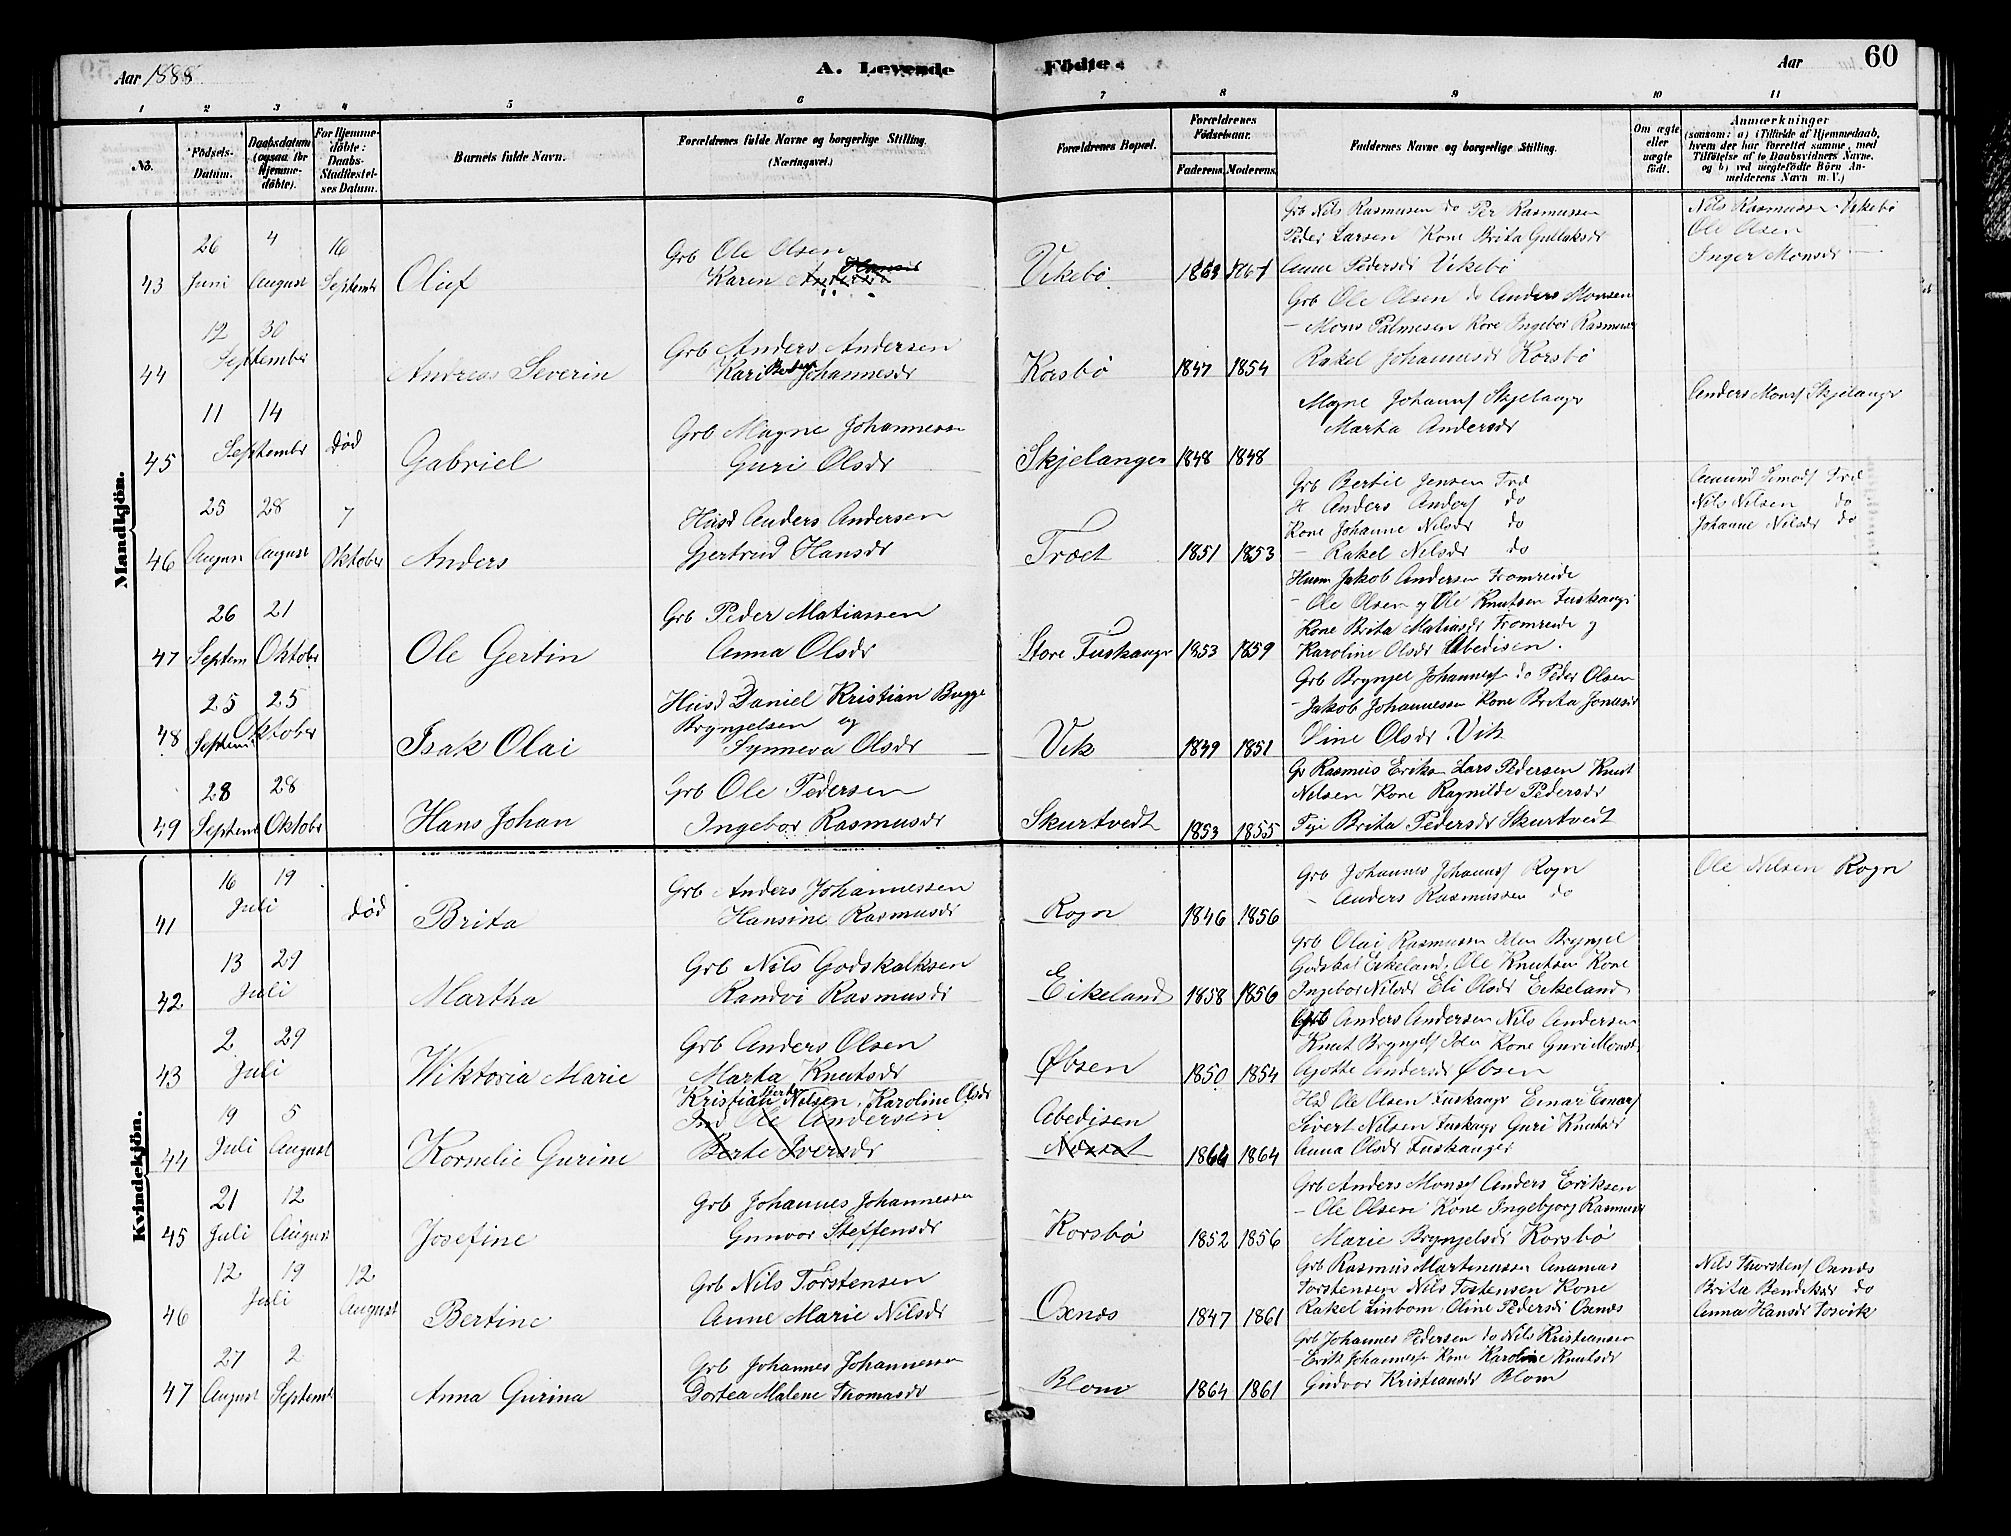 Aar 1888
A. Levende
Fødte.
Aar
60
1 2 3 4 5 6 7 8 9 10 11
No.
Fødsels-Datum.
Daabsdatum (ogsaa for Hjemme-døbte).
For Hjemme-døbte: Daabs-Stadfæstel-ses Datum.
Barnets fulde Navn.
Forældrenes fulde Navne og borgerlige Stilling.
(Næringsvei.)
Forældrenes Bopæl.
Forældrenes Fødselsaar.
Faderens. Moderens.
Faddernes Navne og borgerlige Stilling.
Om ægte eller uægte født.
Anmærkninger
(saasom: a) i Tilfælde af Hjemmedaab,
hvem der har forrettet samme, med
Tilføielse af to Daabsvidners Navne,
og b) ved uægtefødte Børn An-
melderens Navn m. V.)
Mandkjøn.
43 26 Juni 4 August 16 Septembr Oluf
Grb Ole Olsen
Karen
Vikebø 1863 1861
Grb Nils Rasmusen do Per Rasmussen
Peder Larsen Kone Brita Gullaksdr
Anne Pedersdr Vikebø
Nils Rasmussen Vikebø
Ole Olsen —
Inger Monsdr —
44 12 30 September Andreas Severin
Grb Anders Andersen
Kari Johannesdr
Korsbø 1847 1854
Grb Ole Olsen do Anders Monsen
— Mons Palmesen Kone Ingebor Rasmusdr
Rakel Johannesdr Korsbø
45 11 14 Septembr død Gabriel
Grb Magne Johannessn
Guri Olsdr
Skjelanger 1848 1848
Magne Johannsf Skjelangr
Marta Andersdr
Anders Monsf Skjelangr
46 25 August 28 August 7 Oktober Anders
Husd Anders Andersen
Gjertrud Hansdr
Træet 1851 1853
Grb Bertil Jensen Træ
H Anders Andersf do
Kone Johanne Nilsdr do
— Rakel Nilsdr do
Amund Simosf Træ
Nils Nilsen do
Johanne Nilsdr do
47 26 Septem 21 Oktobr Ole Gertin
Grb Peder Matiassen
Anna Olsdr
Store Fuskangr 1853 1859
Husm Jakob Andersen Fromreide
— Ole Olsen og Ole Knutsen Fuskangr
Kone Brita Matiasdr Fromreide og
Karoline Olsdr Abedisen.
48 25 Septemb 25 Oktober Isak Olai
Husd Daniel Kristian Bugge
Brynjelsen og
Synneva Olsdr
Vik 1849 1851
Grb Brynjel Johannesf do Peder Olsen
— Jakob Johannessen Kone Brita Jonasdr
Oline Olsdr Vik
49 28 Septemb 28 Oktobr Hans Johan
Grb Ole Pedersen
Ingebor Rasmusdr
Skurtvedt 1853 1855
Gr Rasmus Eriksn Lars Pedersen Knut
Nilsen Kone Ragnilde Pedersdr
Pige Brita Pedersdr Skurtvedt
Kvindekjøn.
41 16 19 Juli død Brita
Grb Anders Johannessen
Hansine Rasmusdr
Rogn 1846 1856
Grb Johannes Johannsf Rogn
— Anders Rasmussen do
Ole Nilsen Rogn
42 13 29 Juli Martha
Grb Nils Godskalksen
Randvi Rasmusdr
Eikeland 1858 1856
Grb Olai Rasmussen Brynjel
Eikeland. Ole Knutsen Kone
Ingebor Nilsdr Eli Olsdr Eikeland
43 2 29 Juli Wiktoria Marie
Grb Anders Olsen
Marta Knutsdr
Øbsen 1850 1854
Grb Anders Andersen Nils Andersen
Knut Brynjelsf Kone Guri Monsdr
Agotte Andersdr Øbsen
44 19 Juli 5 August Kornelie Gurine
Kristian Nilsen. Karoline Olsdr
Ind Ole Andersen
Berte Iversdr
Abedisen
1864 1864
Hsd Ole Olsen Fuskangr Einar Einarsf
Sivert Nilsen Fuskangr Guri Knutsdr
Anna Olsdr Fuskanger
45 21 Juli 12 August Josefine
Grb Johannes Johannessn
Gunvor Steffensdr
Korsbø 1852 1856
Grb Anders Monsf Anders Eriksen
— Ole Olsen Kone Ingebjorg Rasmusdr
Marie Brynjelsdr Korsbø
46 12 19 Juli 12 August Bertine
Grb Nils Torstensen
Anne Marie Nilsdr
Oxnes 1847 1861
Grb Rasmus Martinussen Ananias
Torstensen Nils Torstensen Kone
Rakel Linbom. Oline Pedersdr Oxnes
Nils Thorstensf Oxnes
Brita Bendiksdr do
Anna Hansdr Tosvik
47 27 August 2 Septemb Anna Gurina
Grb Johannes Johannessn
Dortea Malene Thomasdr
Blom 1864 1861
Grb Johannes Pedersen do Nils Kristiansen
— Erik Johannesf Kone Karoline Knutsdr
Gudvor Kristiansdr Blom